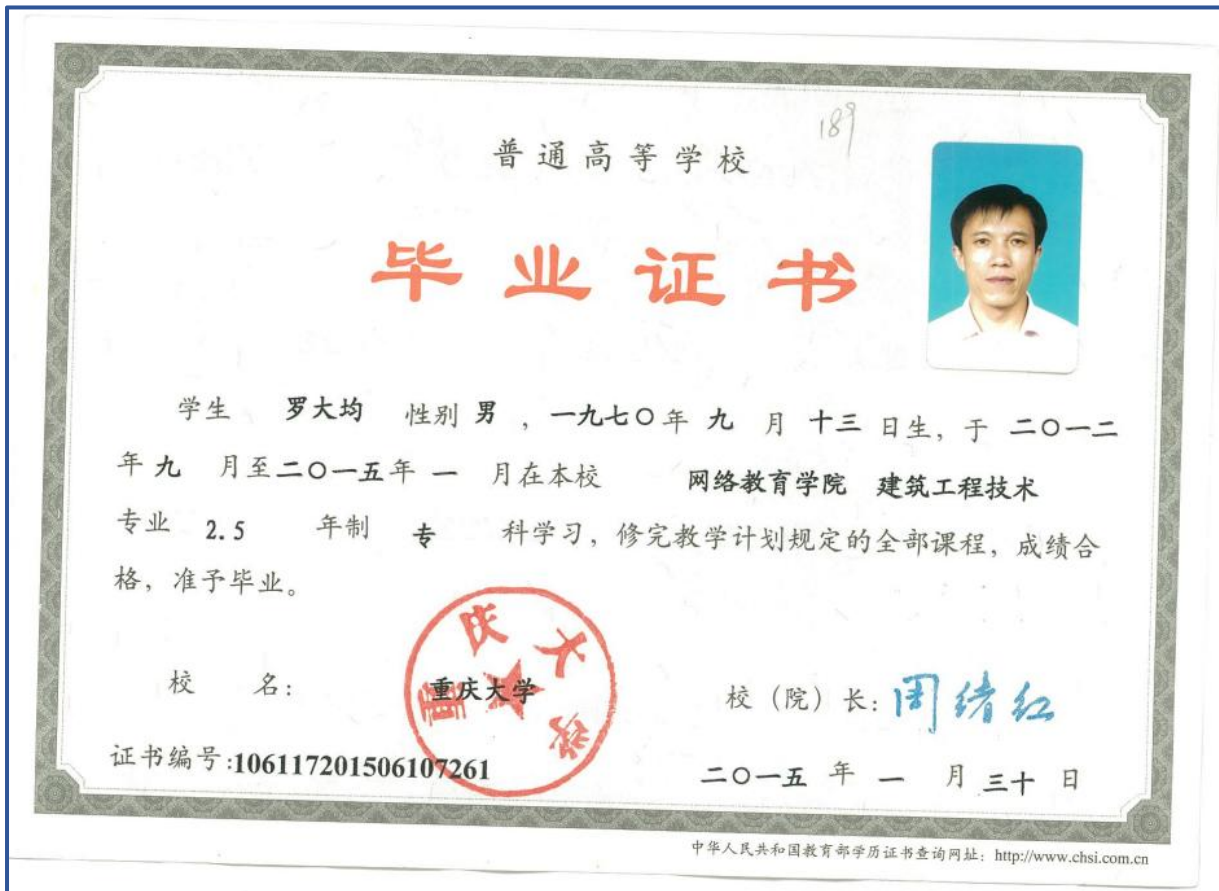 189
普通高等学校
毕业证书
学生 罗大均 性别 男 , 一九七〇年 九 月 十三 日生, 于 二〇一二
年 九 月至二〇一五年 一 月在本校 网络教育学院 建筑工程技术
专业 2.5 年制 专 科学习, 修完教学计划规定的全部课程, 成绩合
格, 准予毕业。
重庆大学
校 名: 重庆大学 校 (院) 长: 周绪红
证书编号:106117201506107261 二〇一五 年 一 月 三十 日
中华人民共和国教育部学历证书查询网址: http://www.chsi.com.cn